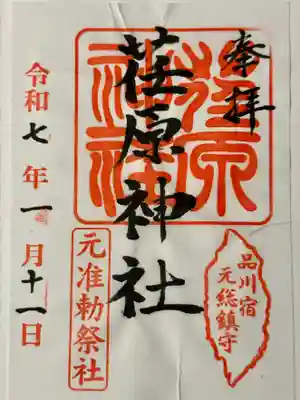 奉拝
荏原神社
荏原
神社
品川宿
元総鎮守
元准勅祭社
令和七年一月十一日